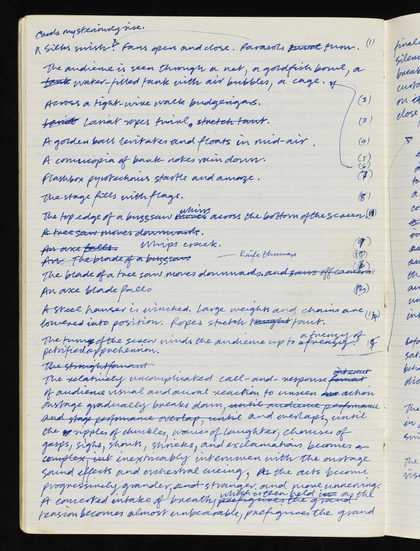 Cards mysteriously rise.
A silks swish? Fans open and close. Parasols turn. (1)
The audience is seen through a net, a goldfish bowl, a
tank water-filled tank with air bubbles, a cage.
Across a tight-wire walk budgerigars. (2)
Lariat ropes twirl, stretch taut. (3)
A golden ball levitates and floats in mid-air. (4)
A cornucopia of bank notes rain down. (5)
Flashbox pyrotechnics startle and amaze. (7)
The stage fills with flags. (8)
The top edge of a buzzsaw whirrs across the bottom of the screen. (11)
A tree saw moves downwards.
An axe falls. Whips crack. (9)
An The blade of a buzzsaw Knife throwers
The blade of a tree saw moves downwards and saws off camera
An axe blade falls
A steel hawser is winched. Large weights and chains are (14)
lowered into position. Ropes stretch taught taut.
The tuning of the screw winds the audience up to a frenzy of
petrified apprehension.
The straightforward
The relatively uncomplicated call-and-response
of audience visual and aural reaction to unseen action
onstage gradually breaks down, until audience performance
and stage performance overlap, until
the ripple of chuckles, waves of laughter, choruses of
gasps, sighs, shouts, shrieks, and exclamations becomes an
complex, but inextricably interwoven with the onstage
sound effects and orchestral cueing. As the acts become
progressively grander, and stranger, and more unnerving.
A concerted intake of breath, which is then held as the
tension becomes almost unbearable, prefigures the grand